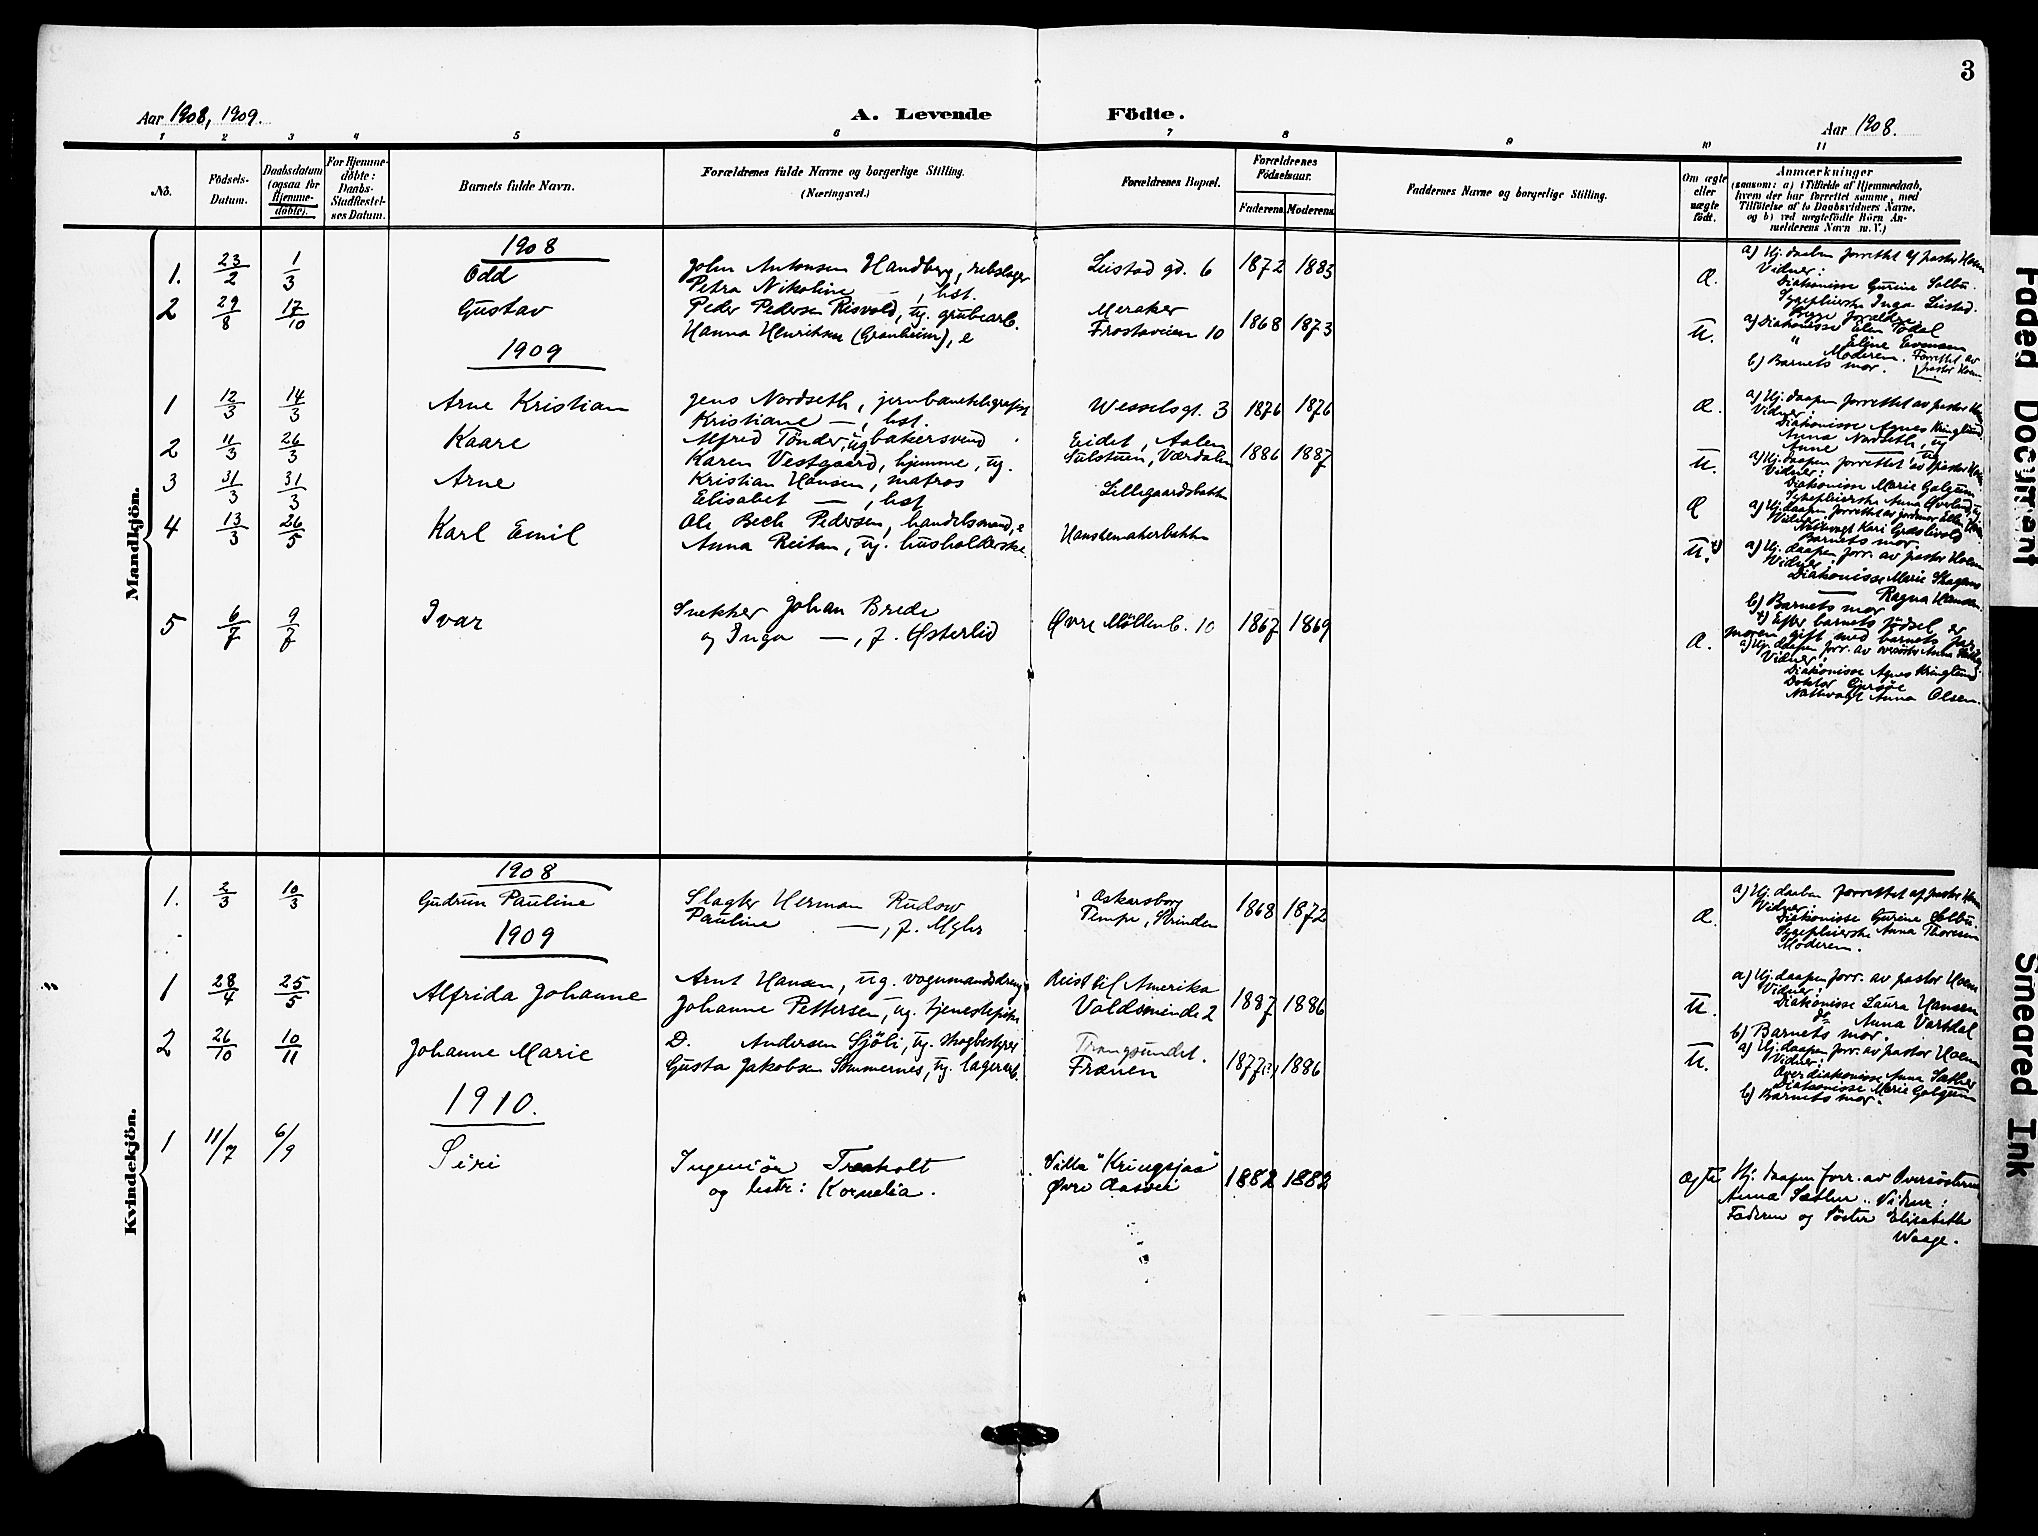 3
Aar 1908, 1909.
A. Levende Födte.
Aar 1908.
1 2 3 4 5 6 7 8 9 10 11
No.
Födsels-
Datum.
Daabsdatum
(ogsaa for
Hjemme-
döbte).
For Hjemme-
döbte:
Daabs-
Stadfæstel-
ses Datum.
Barnets fulde Navn.
Forældrenes fulde Navne og borgerlige Stilling.
(Næringsvei.)
Forældrenes Bopæl.
Forældrenes
Födselsaar.
Faderens Moderens
Faddernes Navne og borgerlige Stilling.
Om ægte
eller
uægte
födt.
Anmærkninger
(saasom: a) i Tilfælde af Hjemmedaab,
hvem der har forrettet samme, med
Tilföielse af to Daabsvidners Navne,
og b) ved uægtefödte Börn An-
melderens Navn m. V.)
Mandkjön.
1908
1. 23/2 1/3 Odd
John Antonsen Handberg, rebslager
Petra Nikoline — , hst.
Leistad gd. 6 1872 1883 Æ.
a) Hj. daaben forrettet af pastor Hoem
Vidner:
Diakonisse Gurine Solbu.
Sygepleierske Inga Leistad.
2 29/8 17/10 Gustav
Peder Pedersen Risvold, ug. grubearb.
Hanna Henriksen (Granheim), e
Meraker
Frostaveien 10 1868 1873 U.
a) Diakonisse Elen Todal
" Eline Evensen
Moderen. Forrettet av
b) Barnets mor. pastor Hoem.
1909
1 12/3 14/3 Arne Kristian
Jens Nordseth, jernbanetelegrafist
Kristiane — , hst.
Wesselsgt. 3 1876 1876 Æ.
a) Hj. daapen forrettet av pastor Hoem
Vidner:
Diakonisse Agnes Kringlund
Anna Nordseth, ug
Anne — ug
2 11/3 26/3 Kaare
Alfred Tönder, ug bakersvend
Karen Vestgaard, hjemme, ug.
Eidet, Aalen
Sulstuen, Værdalen 1886 1887 U.
a) Hj. daapen forrettet av pastor Hoem
Vidner:
Diakonisse Marie Galgum
Sykepleierske Anna Överland, ug
3 31/3 31/3 Arne
Kristian Hansen, matros
Elisabet — , hst
Lillegaardsbakken Æ
a) Hj. daapen forrettet av jordmor Ellen
Vidner
Natkonet Kari Græslivold
Barnets mor.
4 13/3 26/5 Karl Emil
Ole Bech Pedersen, handelsmand, e
Anna Reitan, ug. husholderske
Hanskemakerbakken U. x)
a) Hj. daapen forr. av pastor Hoem
Vidner:
Diakonisse Marie Skagen
— Ragna Hansen
b) Barnets mor
x) Efter barnets födsel er
moren gift med barnets far.
5 6/7 9/7 Ivar
Snekker Johan Brede
og Inga — , f. Østerlid
Øvre Möllenb. 10 1867 1869 Æ.
a) Hj. daapen forr. av oversöster Anna Sæther
Vidner:
Diakonisse Agnes Kringlund
Doktor Gjersöe
Nattevagt Anna Olsen.
Kvindekjön.
1908
1. 2/3 10/3 Gudrun Pauline
Slagter Herman Rudow
Pauline — , f. Myhr
Oskarsborg
Tempe, Strinden 1868 1872 Æ.
a) Hj. daaben forrettet af pastor Hoem
Vidner:
Diakonisse Gurine Solbu.
Sygepleierske Anna Thoresen
Moderen.
1909
1 28/4 25/5 Alfrida Johanne
Arnt Hansen, ug. vognmandsdreng
Johanne Pettersen, ug. tjenestepike
Reist til Amerika
Valdsminde 2 1887 1886 U.
a) Hj. daapen forr. av pastor Hoem
Vidner:
Diakonisse Laura Hansen
do Anna Vartdal
b) Barnets mor.
2 26/10 10/11 Johanne Marie
D. Andersen Sjöli, ug. skogbestyrer
Gusta Jakobsen Sommernes, ug. lagerarb.
Trangsundet.
Frænen 1877(?) 1886 U.
a) Hj. daapen forr. av pastor Hoem
Vidner:
Overdiakonisse Anna Sæther
Diakonisse Marie Galgum
b) Barnets mor.
1910.
1 11/7 6/9 Siri
Ingeniör Træholt
og hstr: Kornelia.
Villa "Kringsjaa"
Øvre Aasvei 1882 1882 Ægte
Hj. daapen forr. av Oversösteren
Anna Sæther. Vidner:
Faderen og Söster Elisabeth
Waage.
Faded Document
Smeared Ink